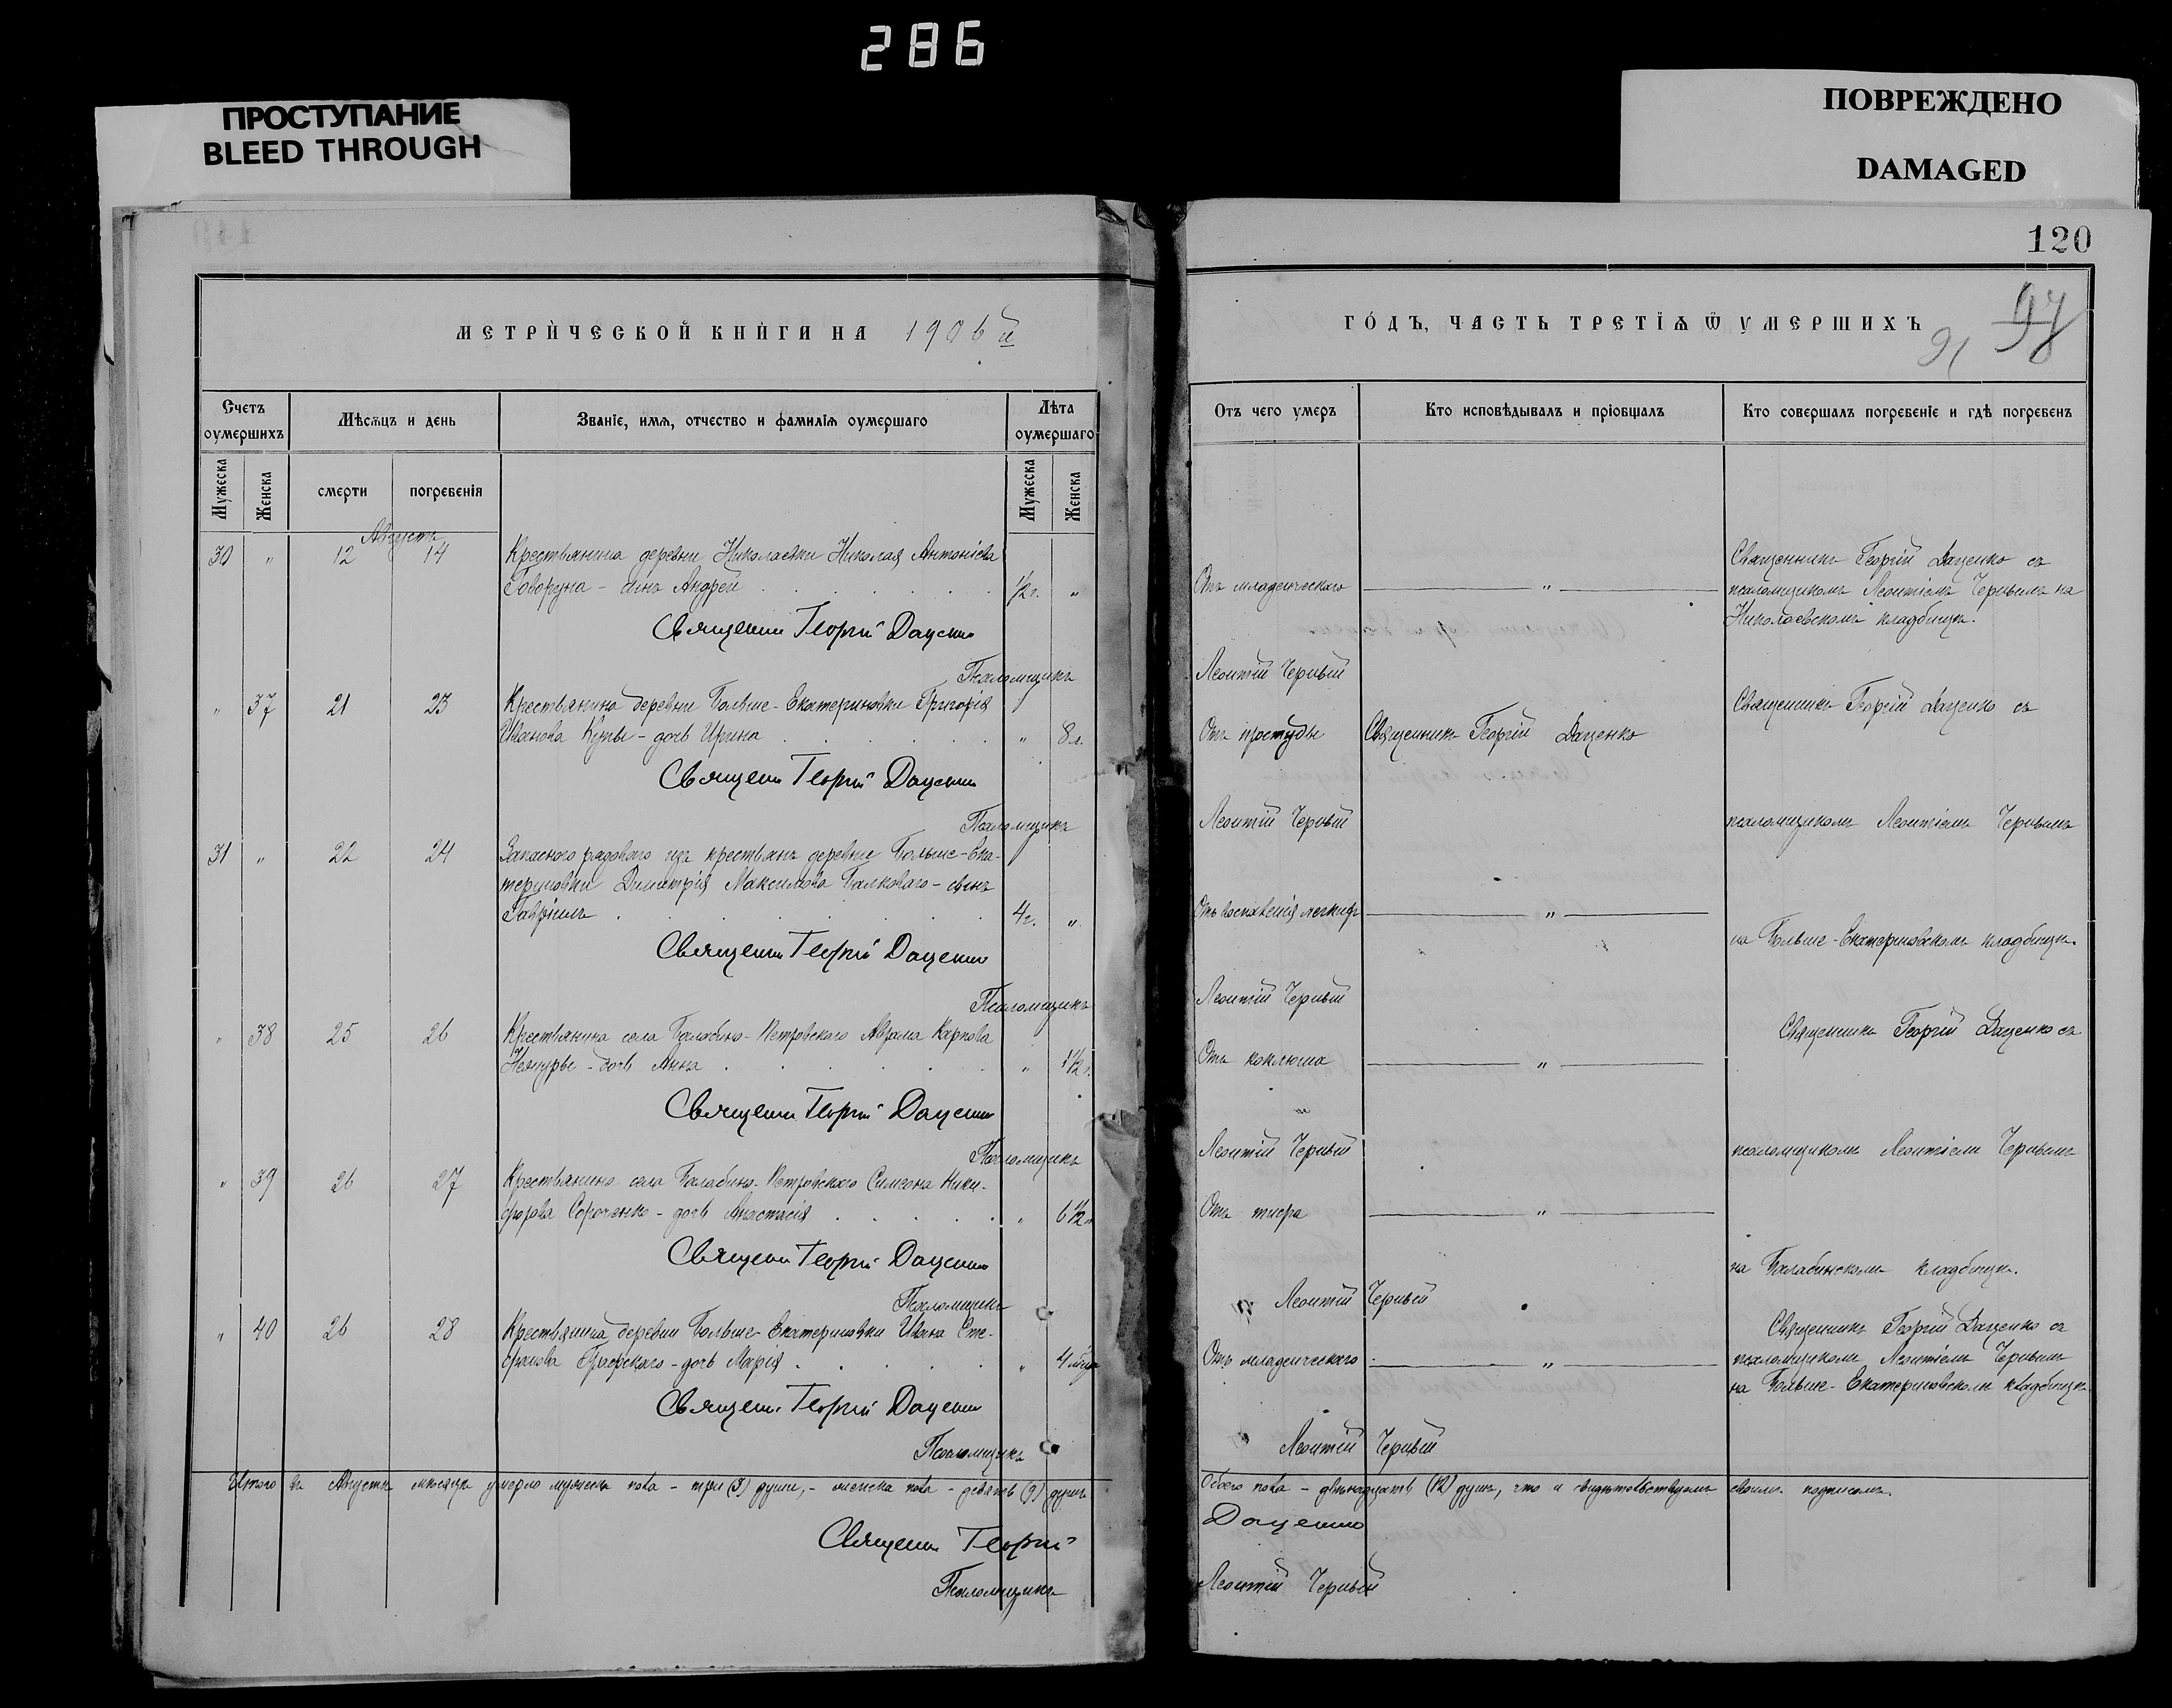 286
ПРОСТУПАНИЕ
BLEED THROUGH
ПОВРЕЖДЕНО
DAMAGED
120
МЕТРИЧЕСКОЙ КНИГИ НА 1906й
ГОДЪ, ЧАСТЬ ТРЕТІѦ Ѿ УМЕРШИХЪ
91
Счетъ оумершихъ
Мѣсѧцъ и день
Званіе, имѧ, отчество и фамиліѧ оумершаго
Лѣта оумершаго
Отъ чего умеръ
Кто исповѣдывалъ и пріобщалъ
Кто совершалъ погребеніе и гдѣ погребенъ
Мужеска
Женска
смерти
погребенія
Мужеска
Женска
Августъ
30 " 12 14 Крестьянина деревни Николаевки Николая Антоніева
Говоруна - сынъ Андрей 1/2 г. "
Отъ младенческаго "
Священникъ Георгій Даценко съ
псаломщикомъ Леонтіемъ Чернымъ на
Николаевскомъ кладбищѣ.
Священ Георгій Даценко
Псаломщикъ Леонтій Черный
" 37 21 23 Крестьянина деревни Больше-Екатериновки Григорія
Иванова Купы - дочь Ирина " 8 л.
Отъ простуды Священникъ Георгій Даценко
Священникъ Георгій Даценко съ
Священ Георгій Даценко
Псаломщикъ Леонтій Черный
псаломщикомъ Леонтіемъ Чернымъ
31 " 22 24 Запасного рядового изъ крестьянъ деревни Больше-Ека-
териновки Димитрія Максимова Балковаго - сынъ
Гавріилъ 4 г. "
Отъ воспаленія легкихъ "
на Больше-Екатериновскомъ кладбищѣ.
Священ Георгій Даценко
Псаломщикъ Леонтій Черный
" 38 25 26 Крестьянина села Балабино-Петровскаго Аврама Карпова
дочь Анна " 1 1/2 г.
Отъ коклюша "
Священникъ Георгій Даценко съ
Священ Георгій Даценко
Псаломщикъ Леонтій Черный
псаломщикомъ Леонтіемъ Чернымъ
" 39 26 27 Крестьянина села Балабино-Петровскаго Симеона Ники-
форова Сороченко - дочь Анастасія " 6 1/2
Отъ тифа "
Священ Георгій Даценко
на Балабинскомъ кладбищѣ.
Псаломщикъ Леонтій Черный
" 40 26 28 Крестьянина деревни Больше-Екатериновки Ивана Сте-
фанова - дочь Марія " 4 мѣс
Отъ младенческаго "
Священникъ Георгій Даценко съ
псаломщикомъ Леонтіемъ Чернымъ
на Больше-Екатериновскомъ кладбищѣ
Священ. Георгій Даценко
Псаломщикъ Леонтій Черный
Итого въ Августѣ мѣсяцѣ умерло мужеска пола - три (3) души, - женска пола - девять (9) душъ
Обоего пола - двѣнадцать (12) душъ, что и свидѣтельствуемъ своимъ подписомъ.
Священ Георгій Даценко
Псаломщикъ Леонтій Черный